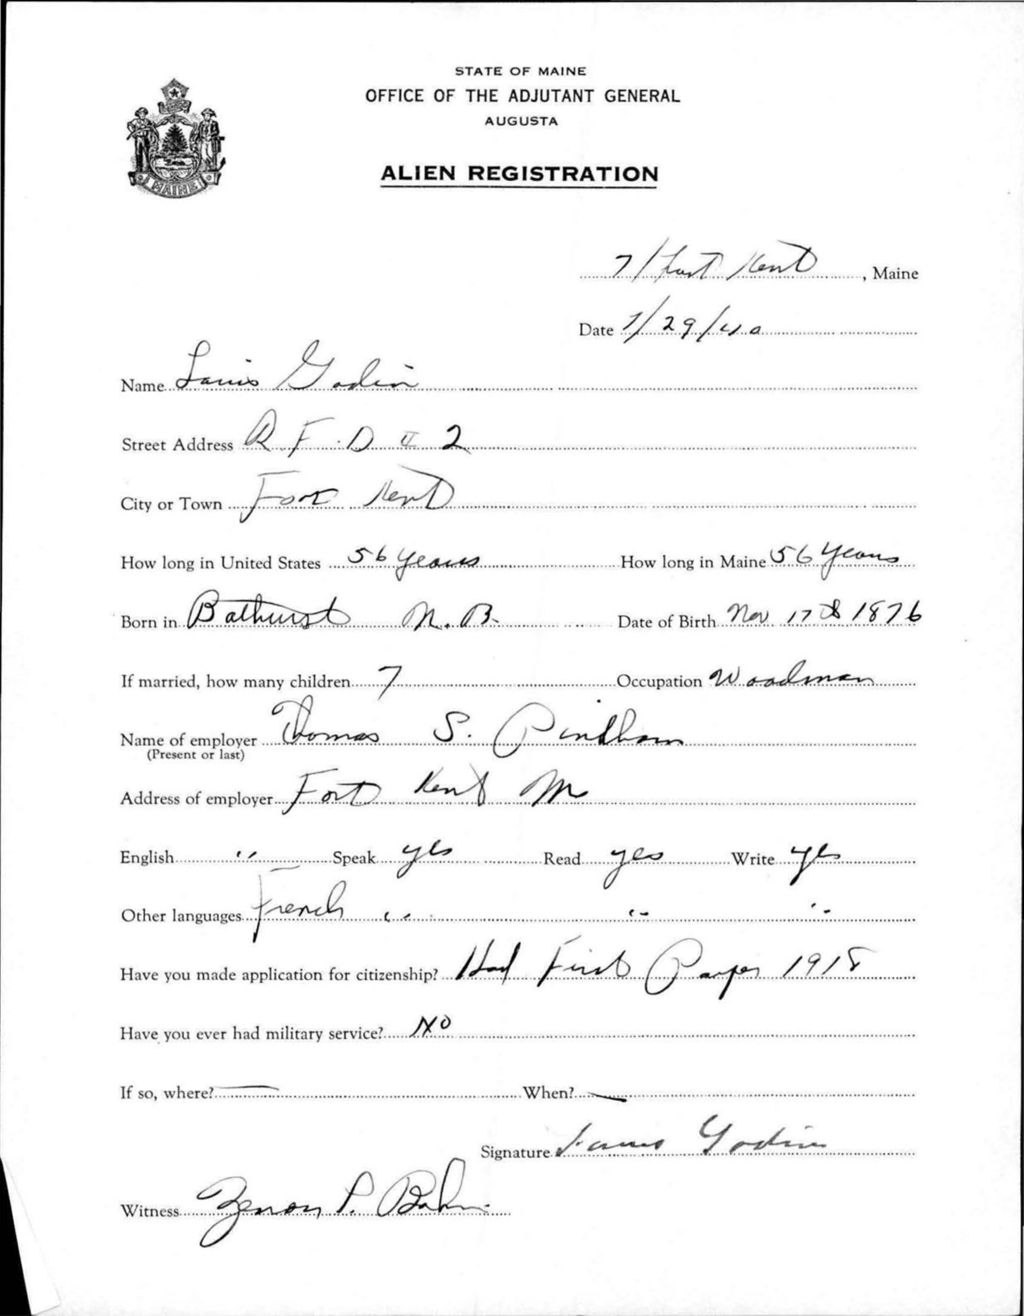 STATE OF MAINE
OFFICE OF THE ADJUTANT GENERAL
AUGUSTA
MAINE
ALIEN REGISTRATION
Fort Kent, Maine
Date 7/29/40
Name Louis Godin
Street Address R F. D # 2
City or Town Fort Kent
How long in United States 56 years How long in Maine 56 Years
Born in Bathurst N.B. Date of Birth Nov 17th 1876
If married, how many children 7 Occupation Woodman
Name of employer Thomas S. Pinkham
(Present or last)
Address of employer Fort Kent M
English " Speak yes Read yes Write yes
Other languages French " " "
Have you made application for citizenship? Had First Paper 1918
Have you ever had military service? NO
If so, where? — When? —
Signature Louis Godin
Witness Zenon P.